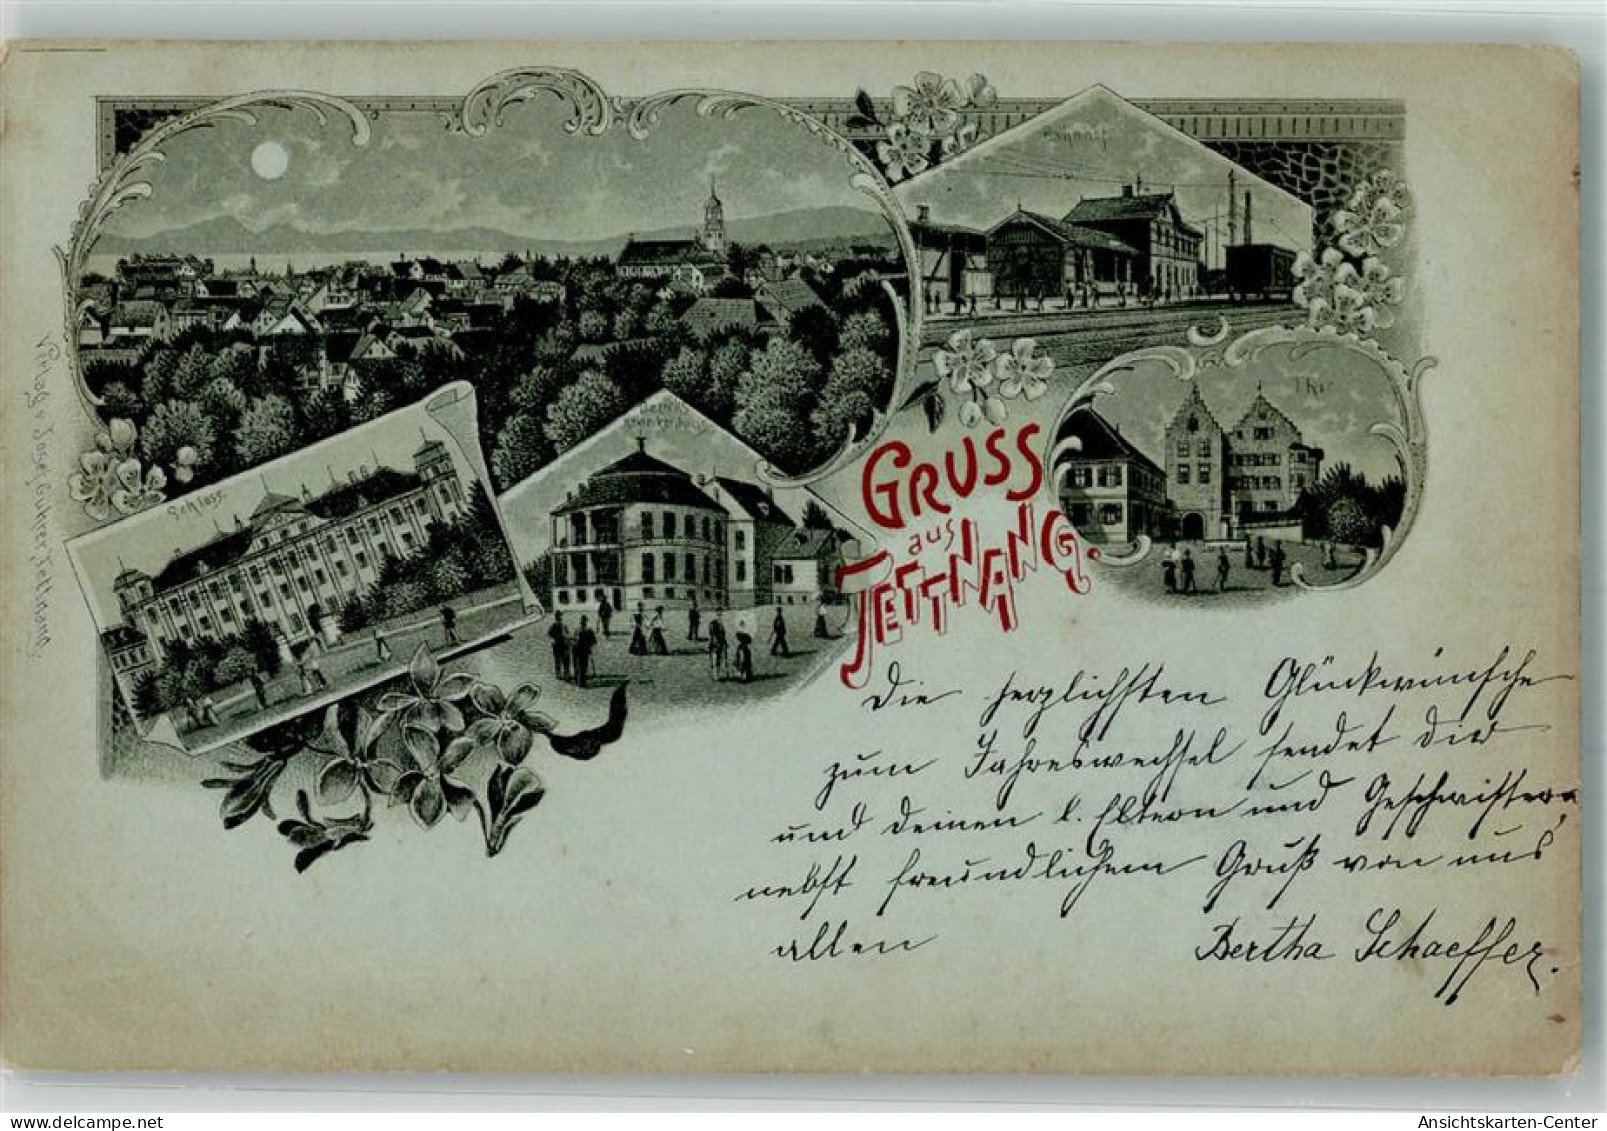 Bahnhof
Thor
Bezirks
krankenhaus
Schloss
GRUSS
aus
TETTNANG.
Verlag v. Josef Bührer, Tettnang.
Die herzlichsten Glückwünsche
zum Jahreswechsel sendet dir
und deinen l. Eltern und Geschwistern,
nebst freundlichem Gruß von uns
allen Bertha Schaeffer.
Ansichtskarten-Center